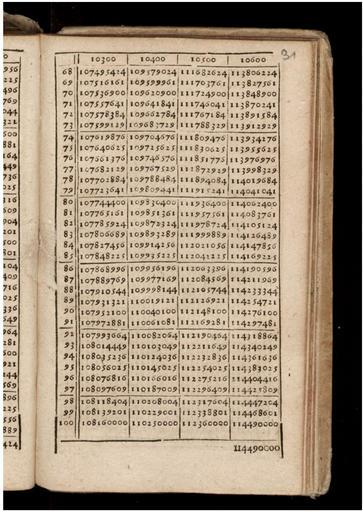 31
10300 10400 10500 10600
68 107495424 109579024 111682624 113806224
69 107516161 109599961 111703761 113827561
70 107536900 109620900 111724900 113848900
71 107557641 109641841 111746041 113870241
72 107578384 109662784 111767184 113891584
73 107599129 109683729 111788329 113912929
74 107619876 109704676 111809476 113934276
75 107640625 109725625 111830625 113955625
76 107661376 109746576 111851776 113976976
77 107682129 109767529 111872929 113998329
78 107702884 109788484 111894084 114019684
79 107723641 109809441 111915241 114041041
80 107744400 109830400 111936400 114062400
81 107765161 109851361 111957561 114083761
82 107785924 109872324 111978724 114105124
83 107806689 109893289 111999889 114126489
84 107827456 109914256 112021056 114147856
85 107848225 109935225 112042225 114169225
86 107868996 109956196 112063396 114190596
87 107889769 109977169 112084569 114211969
88 107910544 109998144 112105744 114233344
89 107931321 110019121 112126921 114254721
90 107952100 110040100 112148100 114276100
91 107972881 110061081 112169281 114297481
92 107993664 110082064 112190464 114318864
93 108014449 110103049 112211649 114340249
94 108035236 110124036 112232836 114361636
95 108056025 110145025 112254025 114383025
96 108076816 110166016 112275216 114404416
97 108097609 110187009 112296409 114425809
98 108118404 110208004 112317604 114447204
99 108139201 110229001 112338801 114468601
100 108160000 110250000 112360000 114490000
114490000